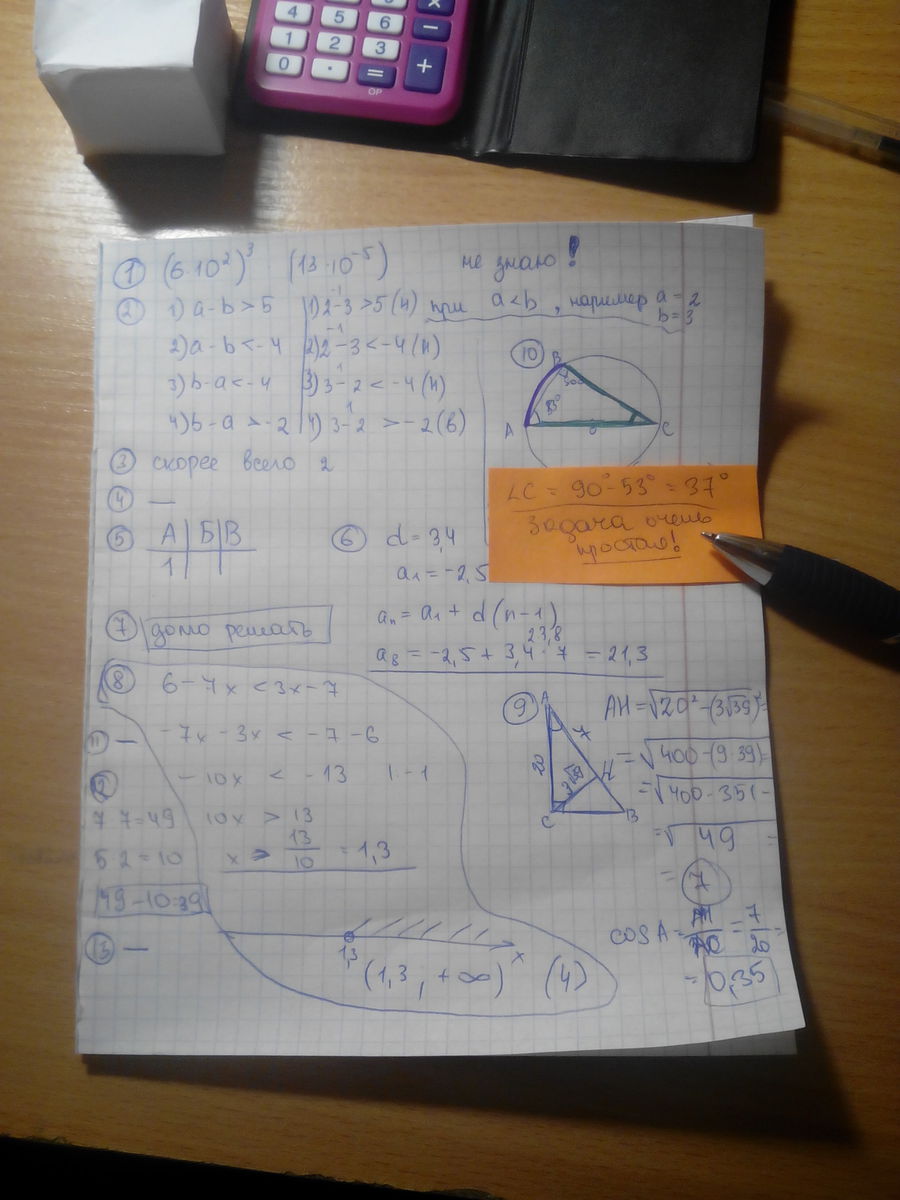 4 5 6 −
1 2 3
0 . = +
OP
1 (6·10²)³ · (13·10⁻⁵) не знаю!
2 1) a-b > 5 1) 2-3 > 5 (Н) при a < b, например a = 2
-1
b = 3
2) a-b < -4 2) 2-3 < -4 (Н)
-1
3) b-a < -4 3) 3-2 < -4 (Н)
1
4) b-a > -2 4) 3-2 > -2 (В)
1
10 B
A C
3 скорее всего 2
4 —
∠C = 90° - 53° = 37°
Задача очень
простая!
5 А Б В
1
6 d = 3,4
a₁ = -2,5
aₙ = a₁ + d (n-1)
23,8
a₈ = -2,5 + 3,4 · 7 = 21,3
7 дома решать
8 6 - 7x < 3x - 7
-7x - 3x < -7 - 6
-10x < -13 |·-1
10x > 13
x > 13/10 = 1,3
1,3 x
(1,3, +∞) (4)
9 A x 20 3√39 H C B
AH = √20² - (3√39)² =
= √400 - (9·39) =
= √400 - 351 =
= √49 =
= 7
cos A = AH/AC = 7/20 =
= 0,35
11 —
12
7·7 = 49
5·2 = 10
49 - 10 = 39
13 —